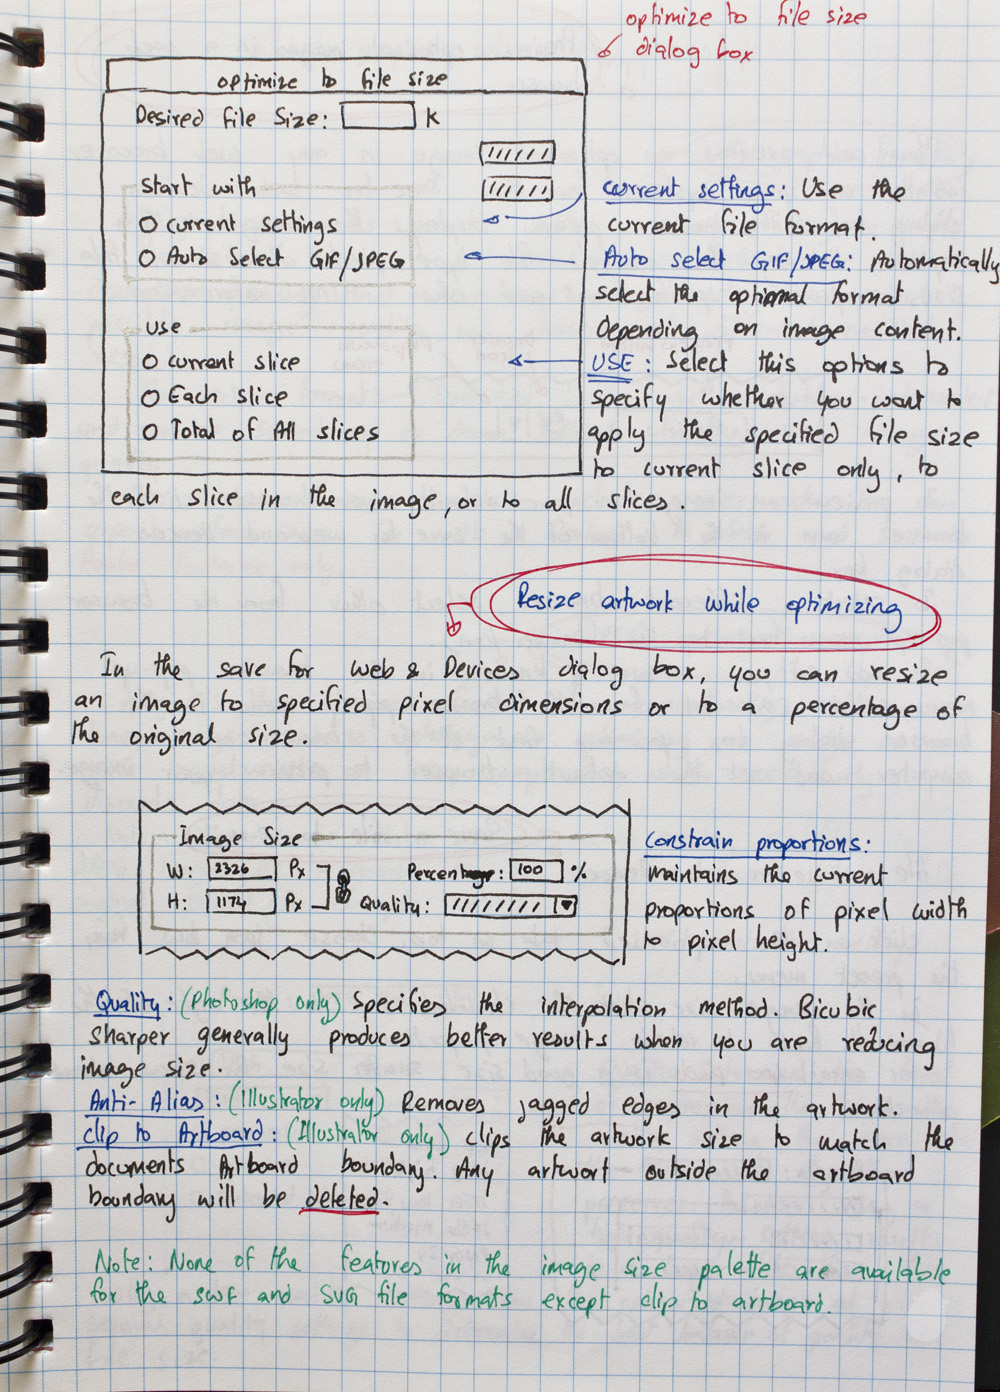 optimize to file size
dialog box
optimize to file size
Desired file Size: K
Start with
current settings
Auto Select GIF/JPEG
use
current slice
Each slice
Total of All slices
current settings: Use the
current file format.
Auto select GIF/JPEG: Automatically
select the optional format
Depending on image content.
USE: Select this options to
specify whether you want to
apply the specified file size
to current slice only, to
each slice in the image, or to all slices.
Resize artwork while optimizing
In the save for web & Devices dialog box, you can resize
an image to specified pixel dimensions or to a percentage of
the original size.
Image Size
W: 2326 Px Percentage: 100 %
H: 1174 Px Quality:
Constrain proportions:
maintains the current
proportions of pixel width
to pixel height.
Quality: (Photoshop only) Specifies the interpolation method. Bicubic
sharper generally produces better results when you are reducing
image size.
Anti-Alias: (Illustrator only) Removes jagged edges in the artwork.
clip to Artboard: (Illustrator only) clips the artwork size to match the
documents Artboard boundary. Any artwort outside the artboard
boundary will be deleted.
Note: None of the features in the image size palette are available
for the swf and SVG file formats except clip to artboard.